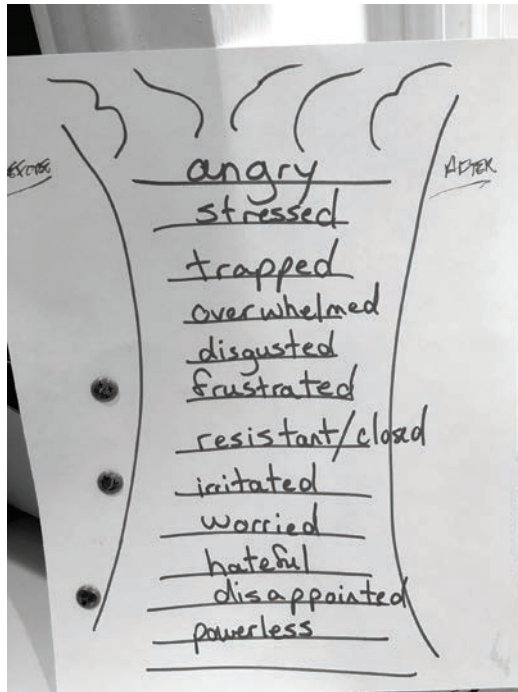 AFTER
angry
stressed
trapped
overwhelmed
disgusted
frustrated
resistant/closed
irritated
worried
hateful
disappointed
powerless